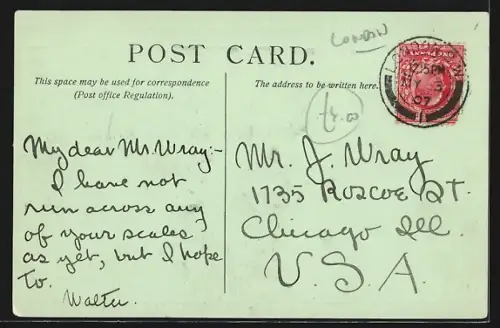 LONDON
POST CARD.
This space may be used for correspondence
(Post office Regulation).
The address to be written here.
My dear Mr. Wray:-
I have not
run across any
of your scales
as yet, but I hope
to.
Walter.
£4.00
Mr. J. Wray
1735 Roscoe St.
Chicago Ill.
U.S.A.
LONDON
07
11